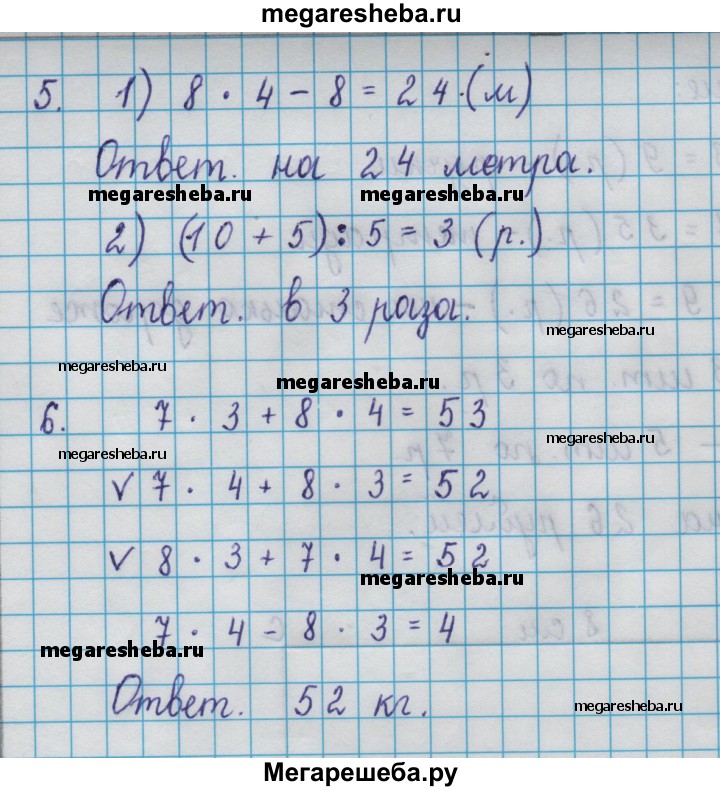 megaresheba.ru
5. 1) 8 · 4 - 8 = 24 (м)
Ответ. на 24 метра.
megaresheba.ru megaresheba.ru
2) (10 + 5) : 5 = 3 (р.)
Ответ. в 3 раза.
megaresheba.ru megaresheba.ru
megaresheba.ru
6. 7 · 3 + 8 · 4 = 53
megaresheba.ru megaresheba.ru
✓ 7 · 4 + 8 · 3 = 52
✓ 8 · 3 + 7 · 4 = 52
megaresheba.ru
7 · 4 - 8 · 3 = 4
megaresheba.ru
Ответ. 52 кг.
megaresheba.ru
Мегарешеба.ру